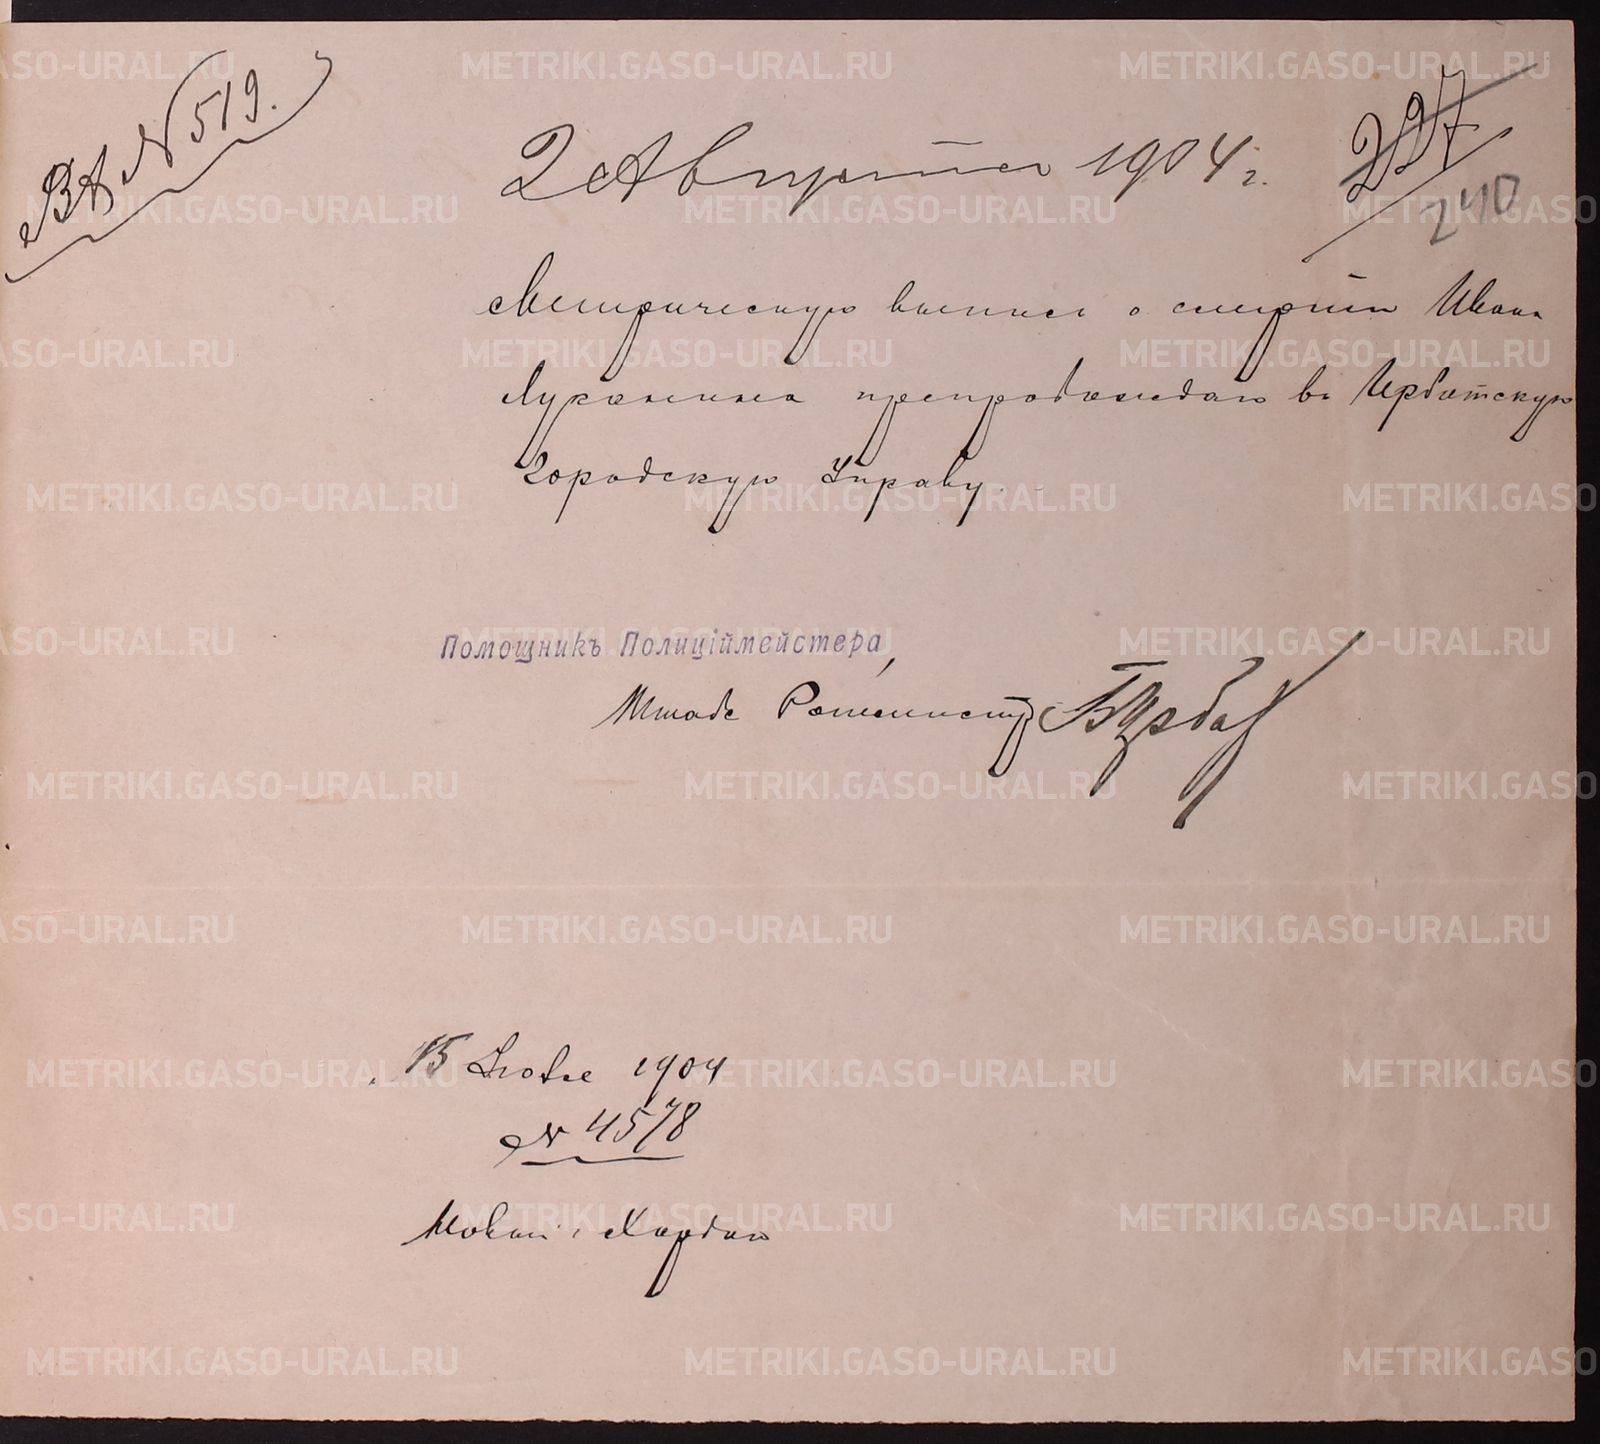 ВХ № 519.
2 Августа 1904 г.
227
240
Метрическую выпись о смерти Ивана
Луканина препровождаю въ Ирбитскую
Городскую Управу.
Помощникъ Полиціймейстера,
Штабс Ротмистр
15 1904
№ 4578
METRIKI.GASO-URAL.RU